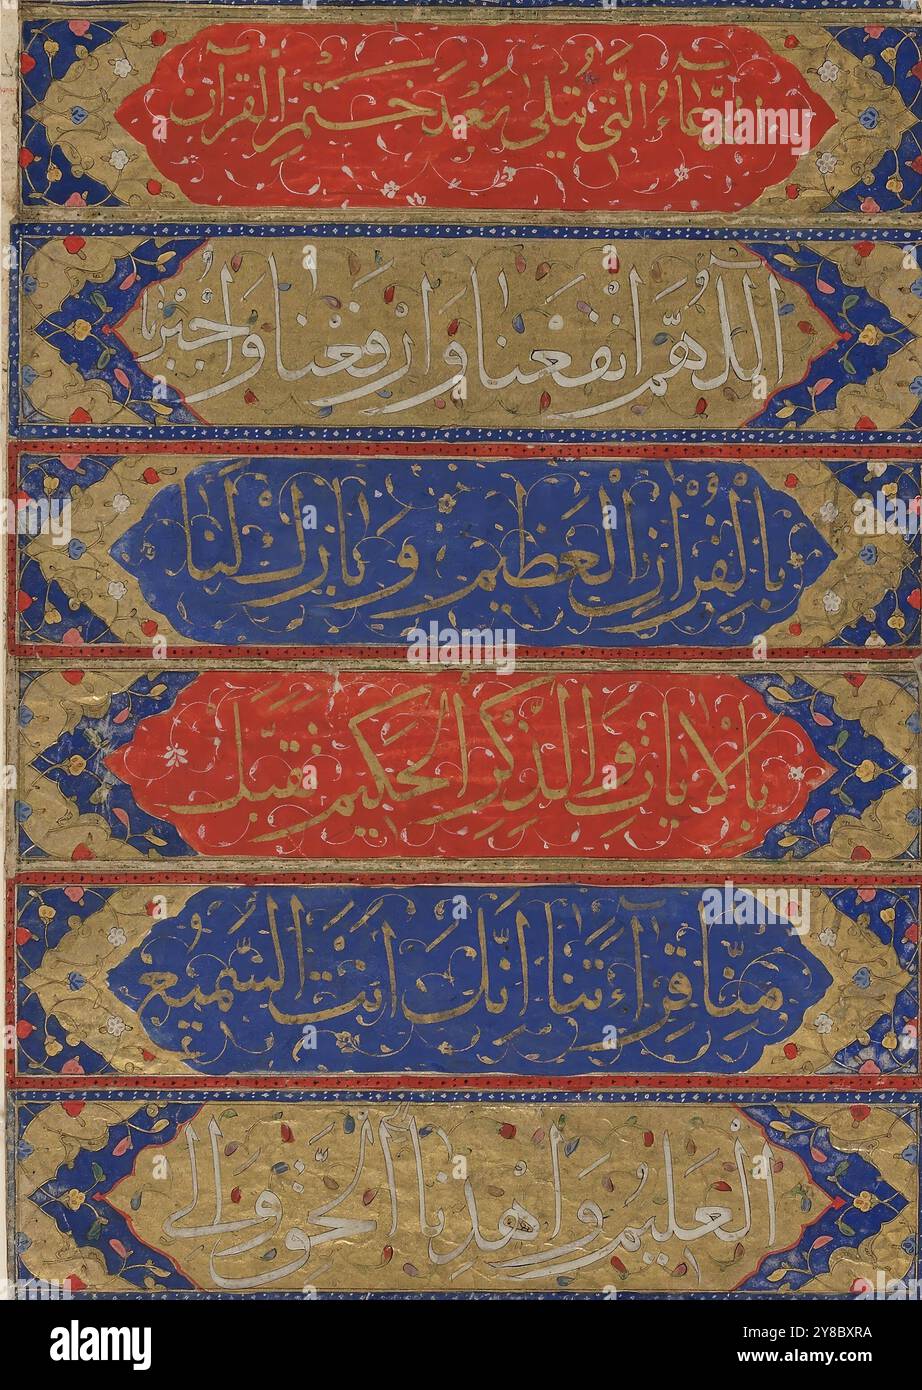 الدُّعَآءُ الَّتِي تُتْلٰى بَعْدَ خَتْمِ الْقُرْآنِ
اَللّٰهُمَّ انْفَعْنَا وَارْفَعْنَا وَاجْبُرْنَا
بِالْقُرْاٰنِ الْعَظِيمِ وَبَارِكْ لَنَا
بِالْاٰيَاتِ وَالذِّكْرِ الْحَكِيمِ تَقَبَّلْ
مِنَّا قِرَآءَتَنَا اِنَّكَ اَنْتَ السَّمِيعُ
الْعَلِيمُ وَاهْدِنَا اِلَى الْحَقِّ وَاِلٰى
alamy
Image ID: 2Y8BXRA
www.alamy.com